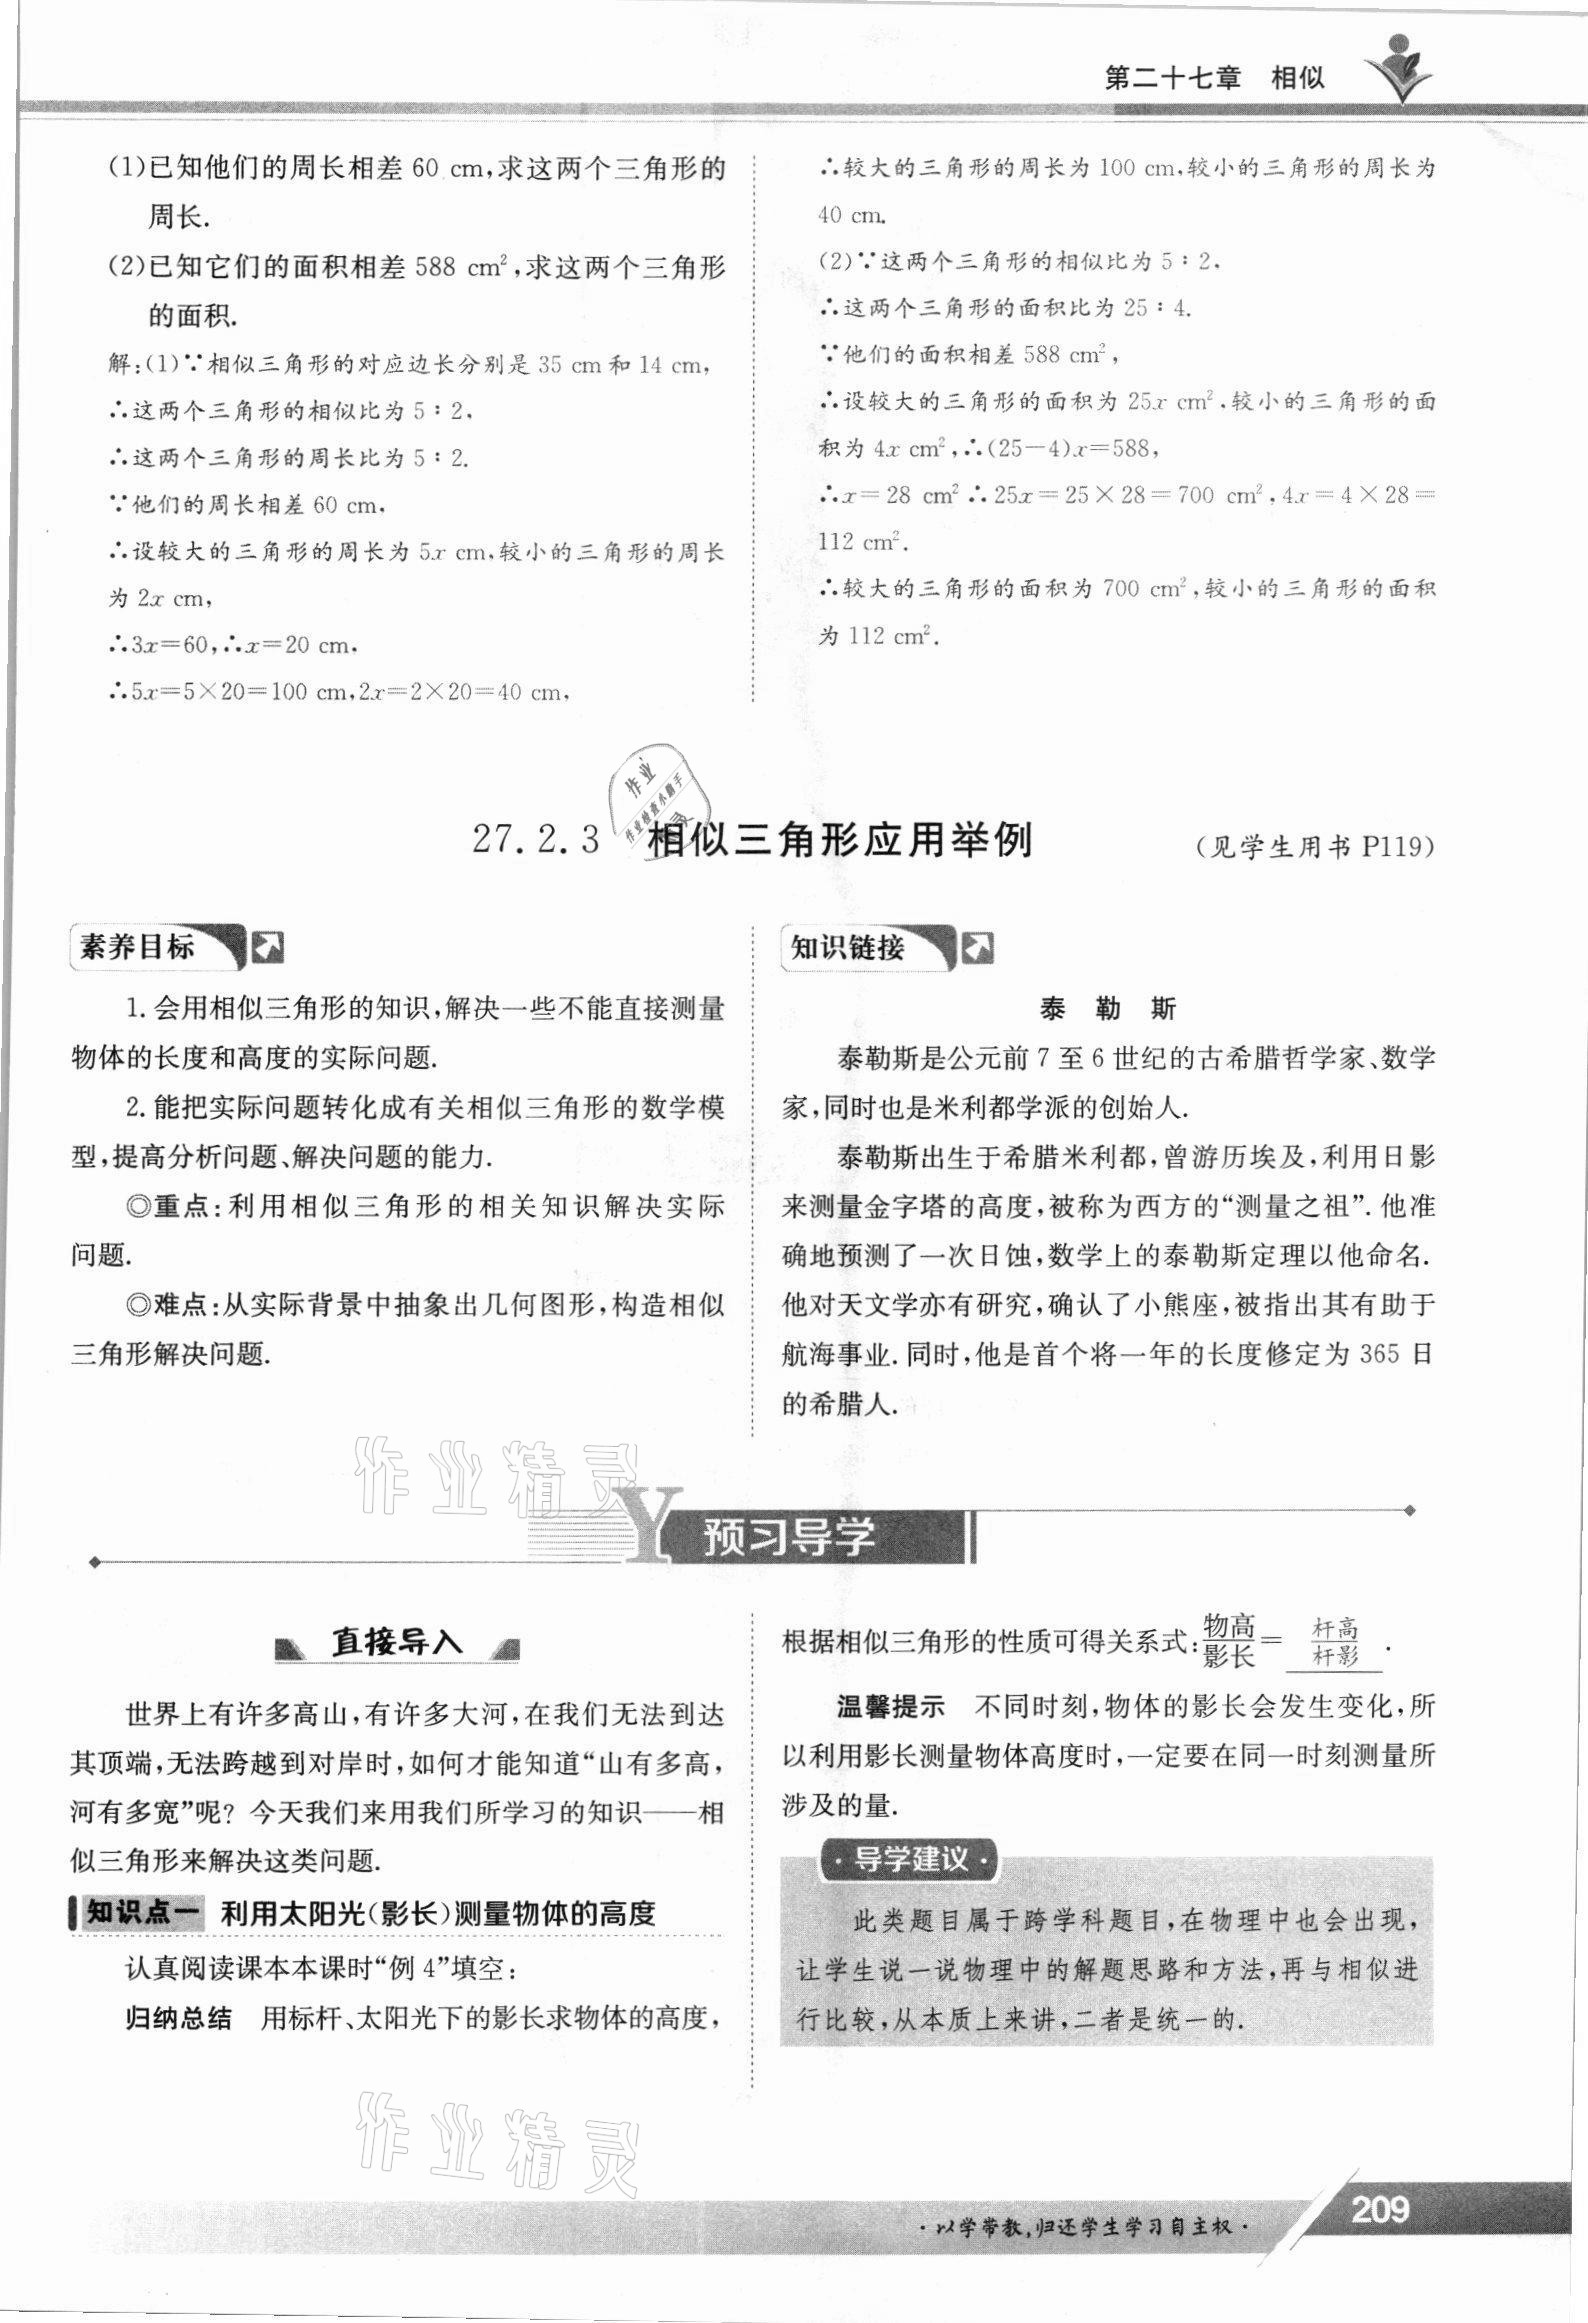 第二十七章 相似
(1)已知他们的周长相差 60 cm,求这两个三角形的
周长.
(2)已知它们的面积相差 588 cm²,求这两个三角形
的面积.
解:(1)∵相似三角形的对应边长分别是 35 cm 和 14 cm,
∴这两个三角形的相似比为 5∶2,
∴这两个三角形的周长比为 5∶2.
∵他们的周长相差 60 cm,
∴设较大的三角形的周长为 5x cm,较小的三角形的周长
为 2x cm,
∴3x=60,∴x=20 cm.
∴5x=5×20=100 cm,2x=2×20=40 cm,
∴较大的三角形的周长为 100 cm,较小的三角形的周长为
40 cm.
(2)∵这两个三角形的相似比为 5∶2,
∴这两个三角形的面积比为 25∶4.
∵他们的面积相差 588 cm²,
∴设较大的三角形的面积为 25x cm²,较小的三角形的面
积为 4x cm²,∴(25-4)x=588,
∴x=28 cm²∴25x=25×28=700 cm²,4x=4×28=
112 cm².
∴较大的三角形的面积为 700 cm²,较小的三角形的面积
为 112 cm².
作业
作业检查小助手
精灵
27.2.3 相似三角形应用举例 (见学生用书 P119)
素养目标
1. 会用相似三角形的知识,解决一些不能直接测量
物体的长度和高度的实际问题.
2. 能把实际问题转化成有关相似三角形的数学模
型,提高分析问题、解决问题的能力.
◎重点:利用相似三角形的相关知识解决实际
问题.
◎难点:从实际背景中抽象出几何图形,构造相似
三角形解决问题.
知识链接
泰 勒 斯
泰勒斯是公元前 7 至 6 世纪的古希腊哲学家、数学
家,同时也是米利都学派的创始人.
泰勒斯出生于希腊米利都,曾游历埃及,利用日影
来测量金字塔的高度,被称为西方的“测量之祖”. 他准
确地预测了一次日蚀,数学上的泰勒斯定理以他命名.
他对天文学亦有研究,确认了小熊座,被指出其有助于
航海事业. 同时,他是首个将一年的长度修定为 365 日
的希腊人.
作业精灵
Y 预习导学
直接导入
世界上有许多高山,有许多大河,在我们无法到达
其顶端,无法跨越到对岸时,如何才能知道“山有多高,
河有多宽”呢? 今天我们来用我们所学习的知识——相
似三角形来解决这类问题.
知识点一 利用太阳光(影长)测量物体的高度
认真阅读课本本课时“例 4”填空:
归纳总结 用标杆、太阳光下的影长求物体的高度,
根据相似三角形的性质可得关系式:物高/影长=杆高/杆影.
温馨提示 不同时刻,物体的影长会发生变化,所
以利用影长测量物体高度时,一定要在同一时刻测量所
涉及的量.
·导学建议·
此类题目属于跨学科题目,在物理中也会出现,
让学生说一说物理中的解题思路和方法,再与相似进
行比较,从本质上来讲,二者是统一的.
作业精灵
·以学带教,归还学生学习自主权·
209